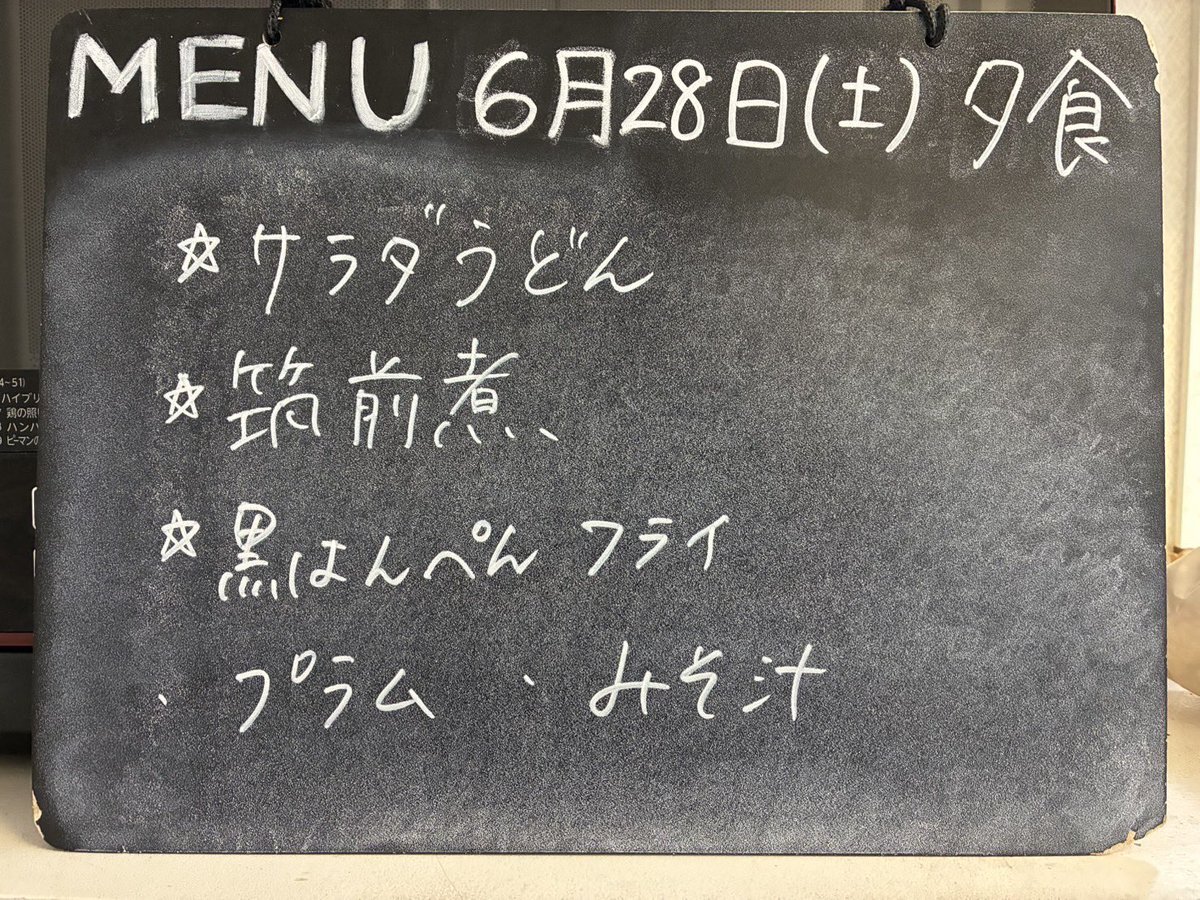 MENU 6月28日(土) 夕食
☆サラダうどん
☆筑前煮
☆黒はんぺんフライ
・プラム ・みそ汁
4~51)
ハイブリ
鶏の照
ハンバ
ピーマンの